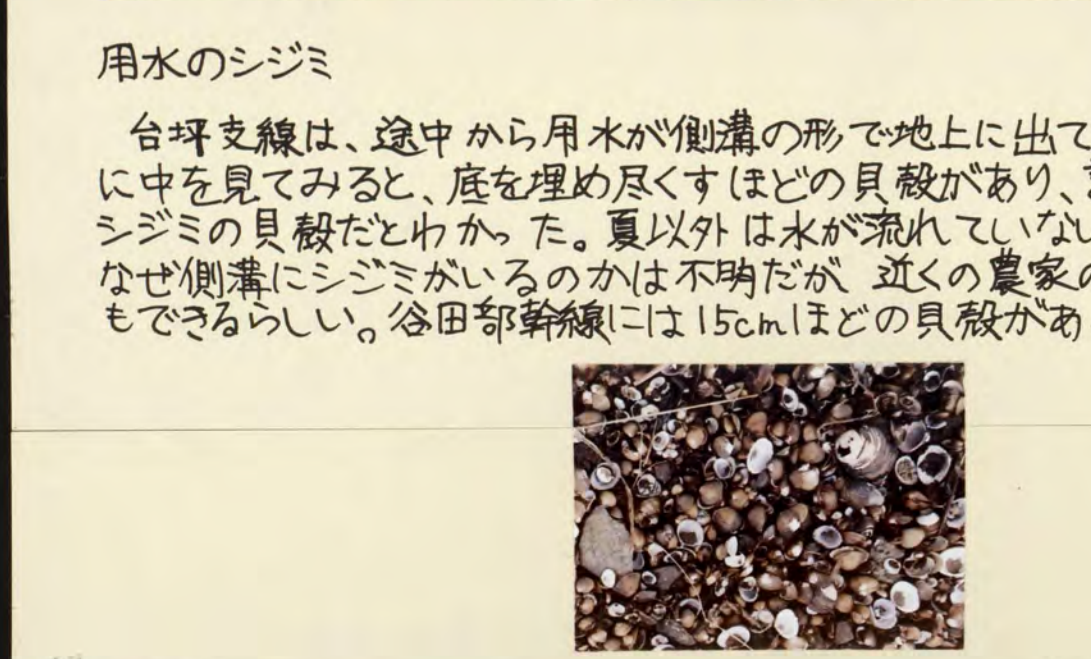 用水のシジミ
台坪支線は、途中から用水が側溝の形で地上に出て
に中を見てみると、底を埋め尽くすほどの貝殻があり、
シジミの貝殻だとわかった。夏以外は水が流れていない
なぜ側溝にシジミがいるのかは不明だが 近くの農家の
もできるらしい。谷田部幹線には15cmほどの貝殻があ